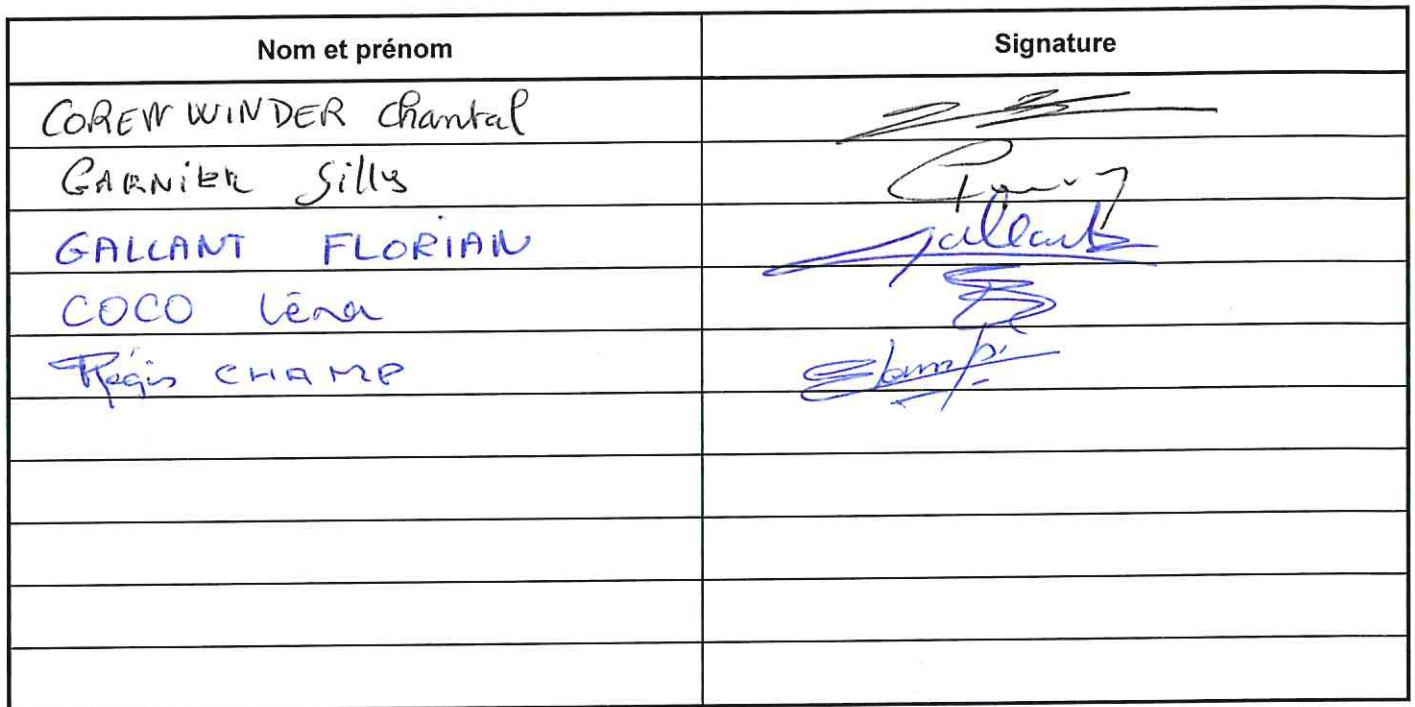 Nom et prénom Signature
COREWWINDER Chantal
GARNIER Gilles
GALLANT FLORIAN Gallant
COCO Léna
Régis CHAMP Champ